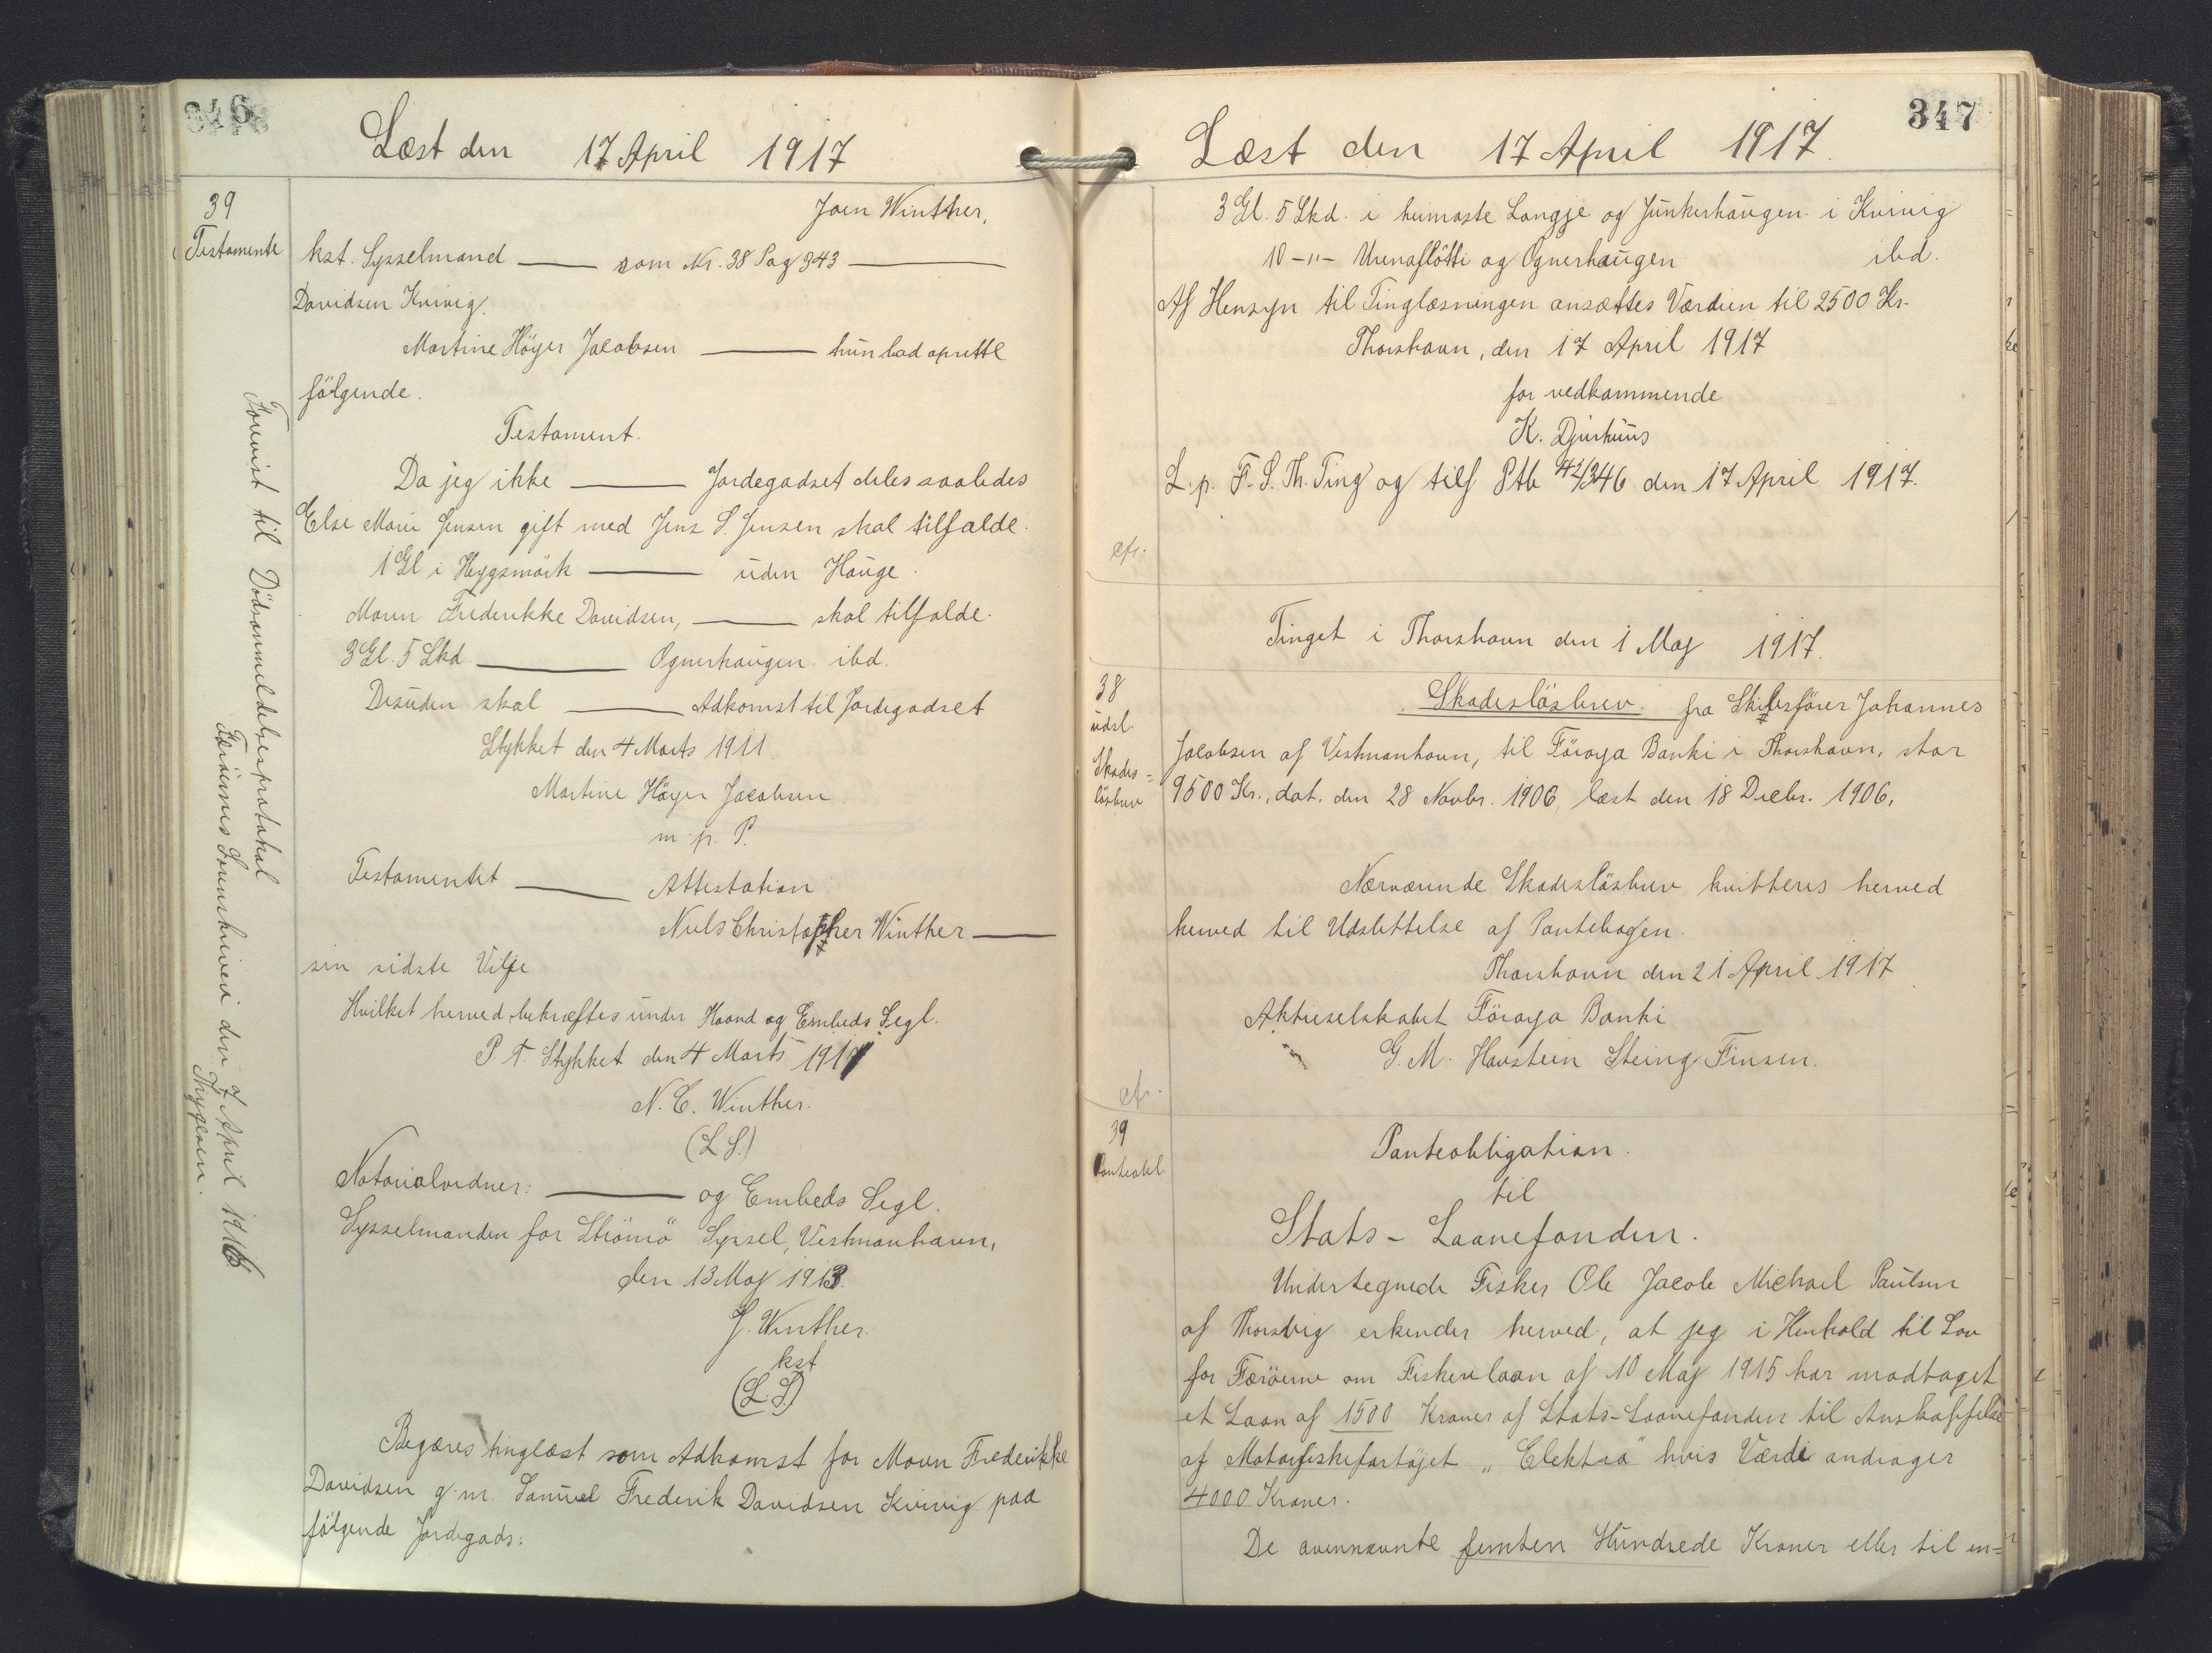 346
Læst den 17 April 1917
39
Testamente
Joen Winther,
kst. Sysselmand — som Nr. 38 Pag 343 —
Davidsen Kvivig.
Martine Höyer Jacobsen — hun bad oprette
følgende.
Testament.
Da jeg ikke — Jordegodset deles saaledes
Else Marie Jensen gift med Jens S. Jensen skal tilfalde.
1 Gl i Heygsmörk — uden Hauge.
Maren Frederikke Davidsen, — skal tilfalde.
3 Gl. 5 Skd — Ognerhaugen ibd.
Desuden skal — Adkomst til Jordegodset
Stykket den 4 Marts 1911.
Martine Höyer Jacobsen
m. p. P.
Testamentet — Attestation
Niels Christopher Winther —
sin sidste Vilje
Hvilket herved bekræftes under Haand og Embeds Segl.
P. T. Stykket den 4 Marts 1911
N. C. Winther.
(L S.)
Notorialordner: — og Embeds Segl.
Sysselmanden for Strömö Syssel, Vestmanhavn,
den 13 Maj 1913.
J. Winther.
kst
(L. S.)
Begæres tinglæst som Adkomst for Maren Frederikke
Davidsen g. m. Samuel Frederik Davidsen Kvivig paa
følgende Jordegods:
Forevist til Dödsanmeldelsesprotokol
Færöernes Sorenskriveri den 7 April 1916
Thygesen.
347
Læst den 17 April 1917.
3 Gl. 5 Skd. i heimaste Langje og Junkerhaugen i Kvivig
10 -"- Urenaflötti og Ognerhaugen ibd.
Af Hensyn til Tinglæsningen ansættes Værdien til 2500 Kr.
Thorshavn, den 17 April 1917
for vedkommende
K. Djurhuus
L. p. F. S. Th. Ting og tilf Ptb 42/346 den 17 April 1917.
cfr.
Tinget i Thorshavn den 1 Maj 1917.
38
udsl.
Skades=
lösbrev
Skadeslösbrev. fra Skibsförer Johannes
Jacobsen af Vestmanhavn, til Föroya Banki i Thorshavn, stor
9500 Kr., dat. den 28 Novbr. 1906, læst den 18 Decbr. 1906.
Nærværende Skadeslösbrev kvitteres herved
herved til Udslettelse af Pantebogen.
Thorshavn den 21 April 1917
Aktieselskabet Föroya Banki
G. M. Havstein Steing Finsen.
cfr.
39
Panteobl.
Panteobligation.
til
Stats-Laanefonden.
Undertegnede Fisker Ole Jacob Michael Paulsen
af Thorsvig erkender herved, at jeg i Henhold til Lov
for Færöerne om Fiskerilaan af 10 Maj 1915 har modtaget
et Laan af 1500 Kroner af Stats-Laanefonden til Anskaffelse
af Motorfiskefartöjet „Elektra" hvis Værdi andrager
4000 Kroner.
De ovennævnte femten Hundrede Kroner eller til en=